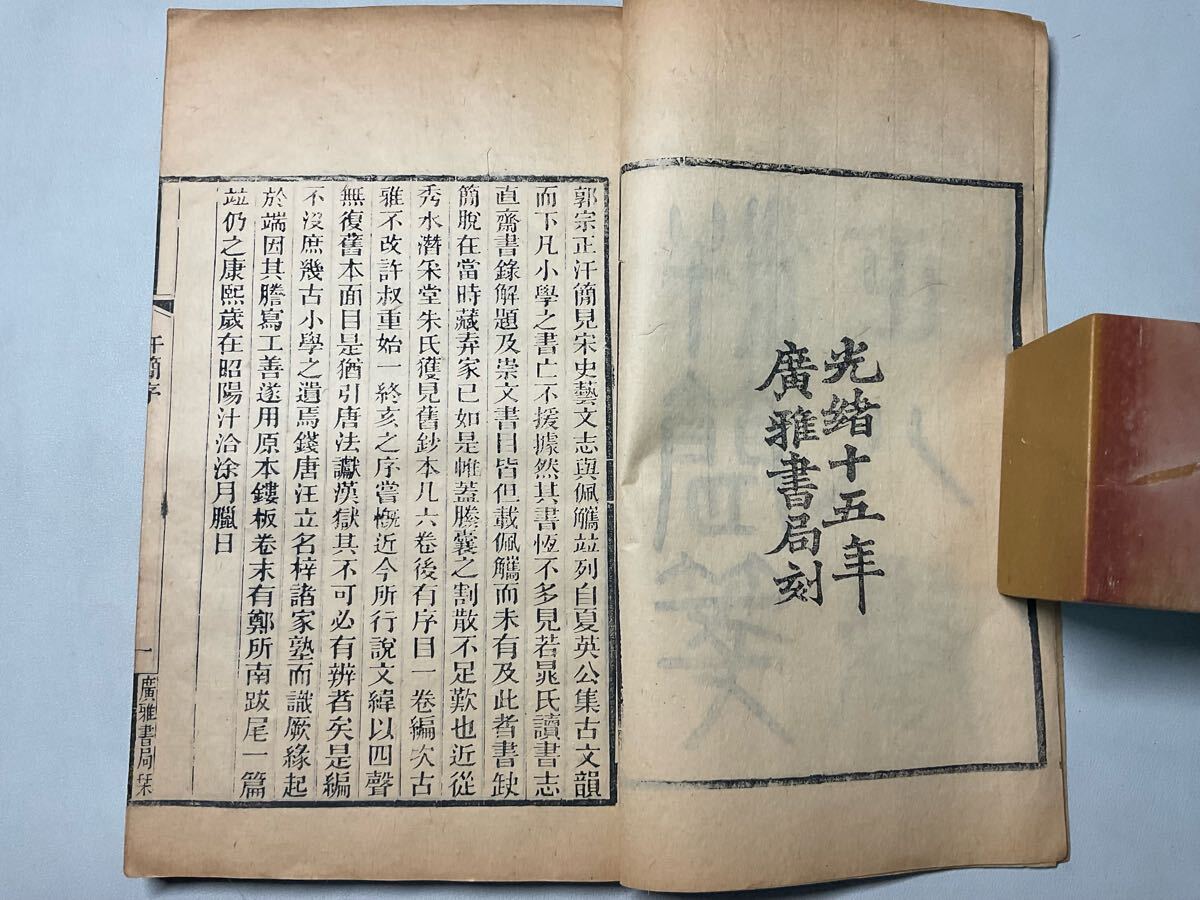 光緒十五年
廣雅書局刻
郭宗正汗簡見宋史藝文志與佩觿竝列自夏英公集古文韻
而下凡小學之書亡不援據然其書恆不多見若晁氏讀書志
直齋書錄解題及崇文書目皆但載佩觿而未有及此者書缺
簡脫在當時藏弆家已如是帷蓋縢囊之割散不足歎也近從
秀水潛采堂朱氏獲見舊鈔本凡六卷後有序目一卷編次古
雅不改許叔重始一終亥之序嘗慨近今所行說文緯以四聲
無復舊本面目是猶引唐法讞漢獄其不可必有辨者矣是編
不沒庶幾古小學之遺焉錢唐汪立名梓諸家塾而識厥緣起
於端因其謄寫工善遂用原本鏤板卷末有鄭所南跋尾一篇
竝仍之康熙歲在昭陽汁洽涂月臘日
汗簡序
一
廣雅書局栞